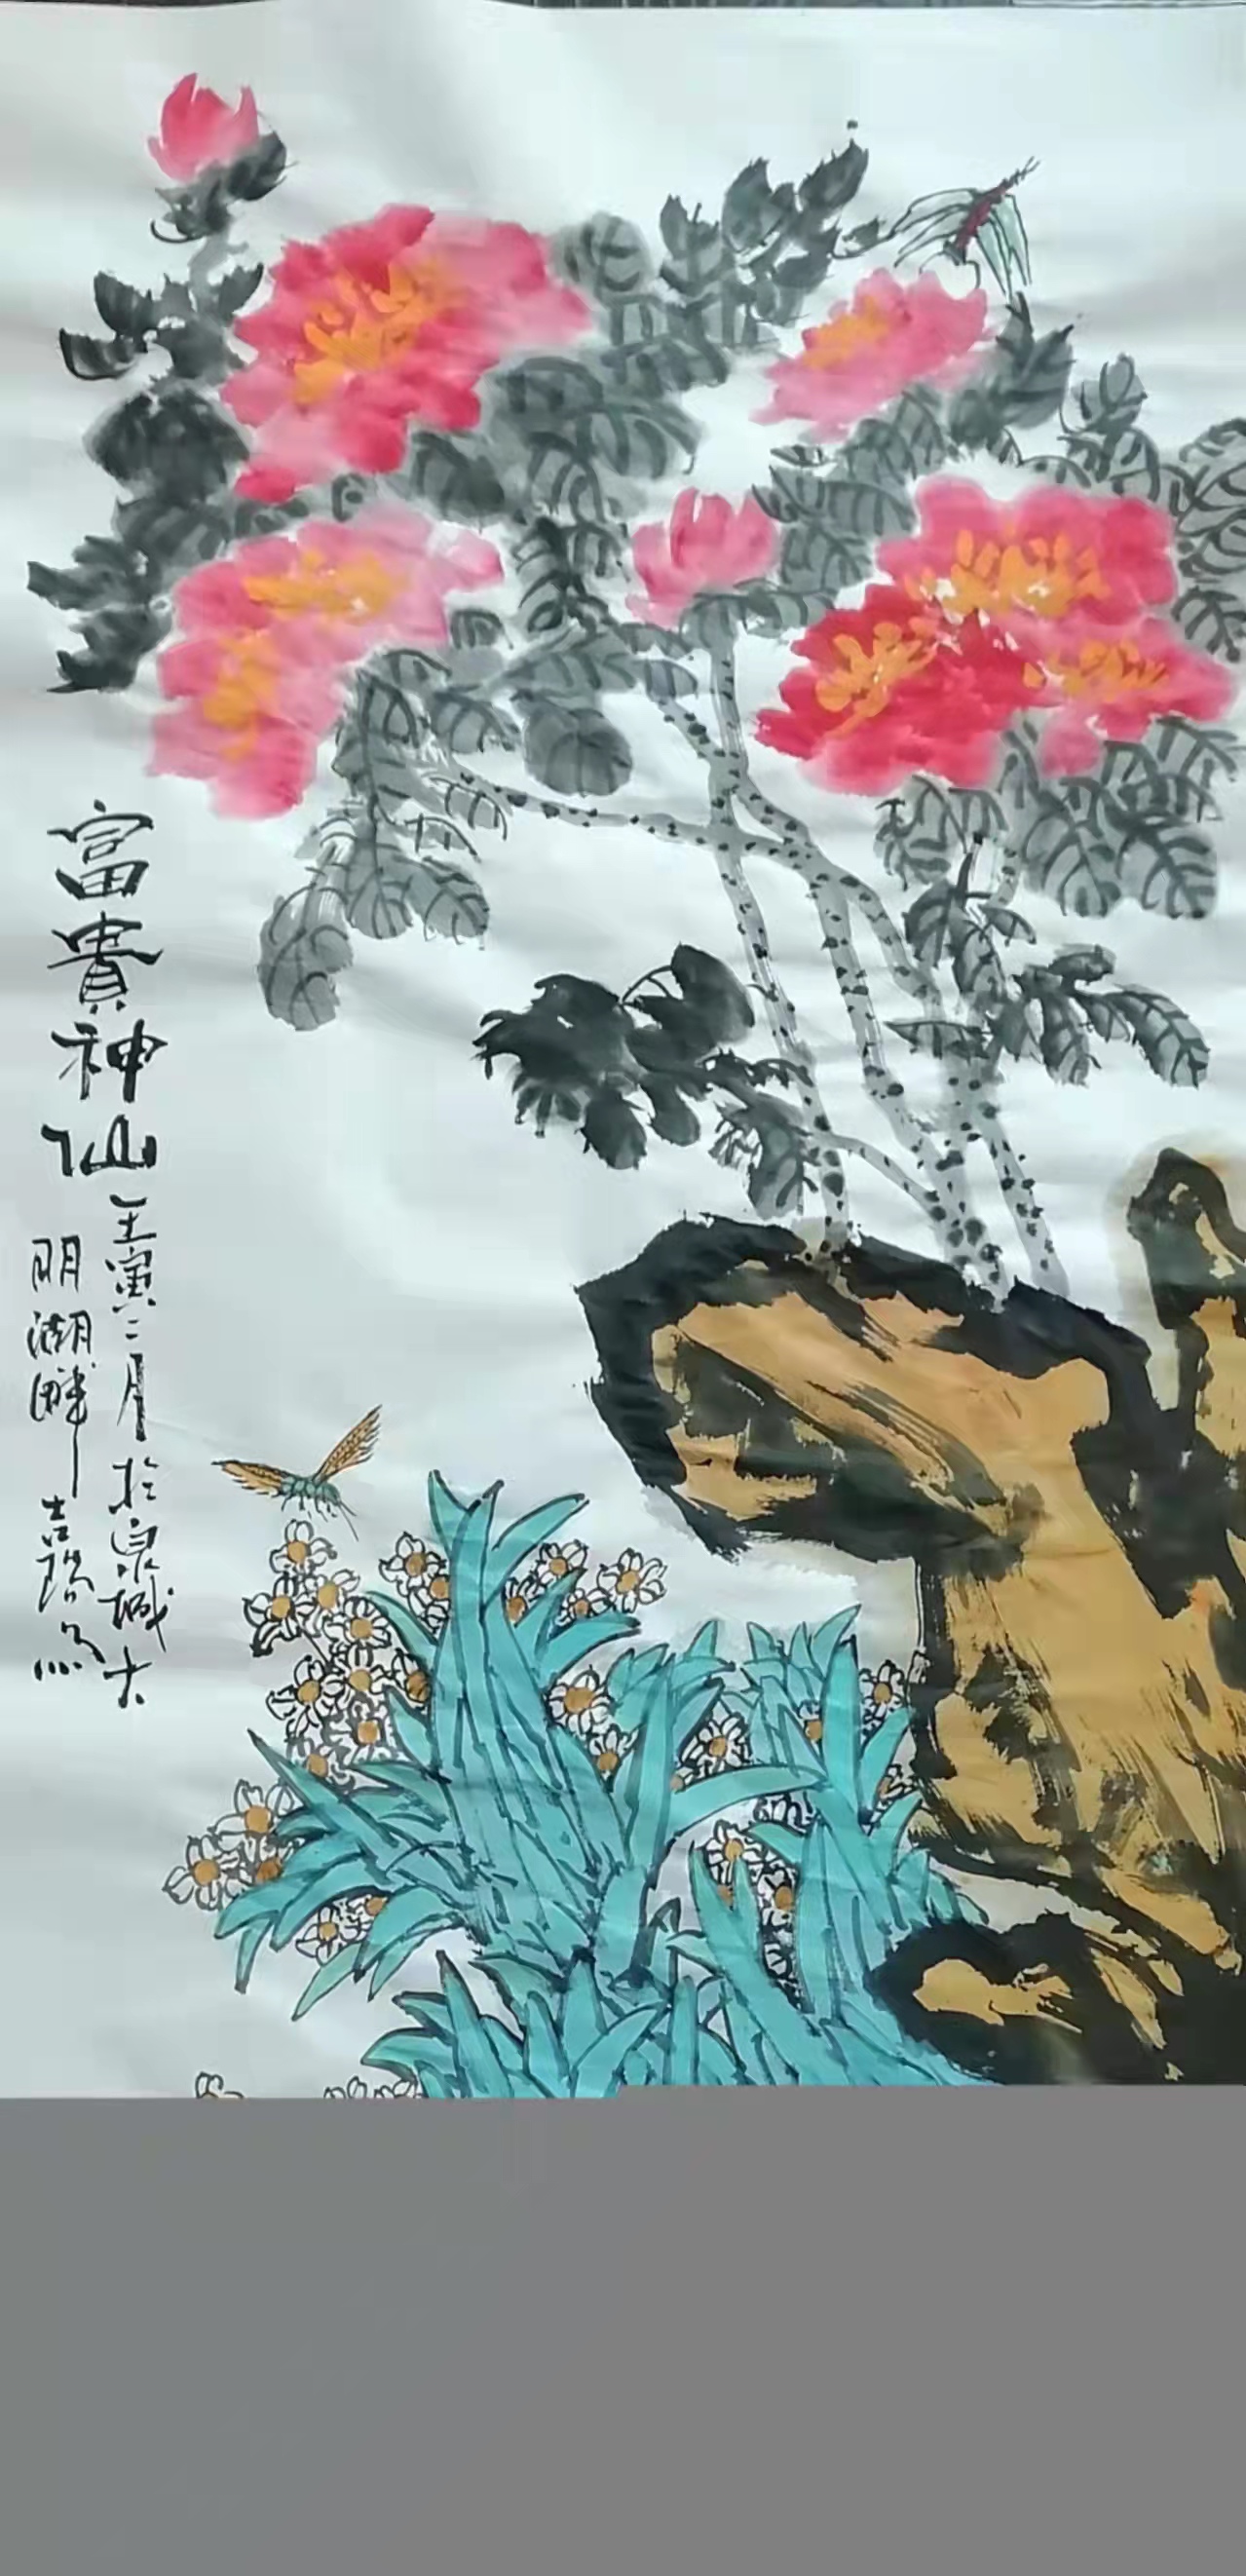 富貴神仙
壬寅二月於泉城大
明湖畔